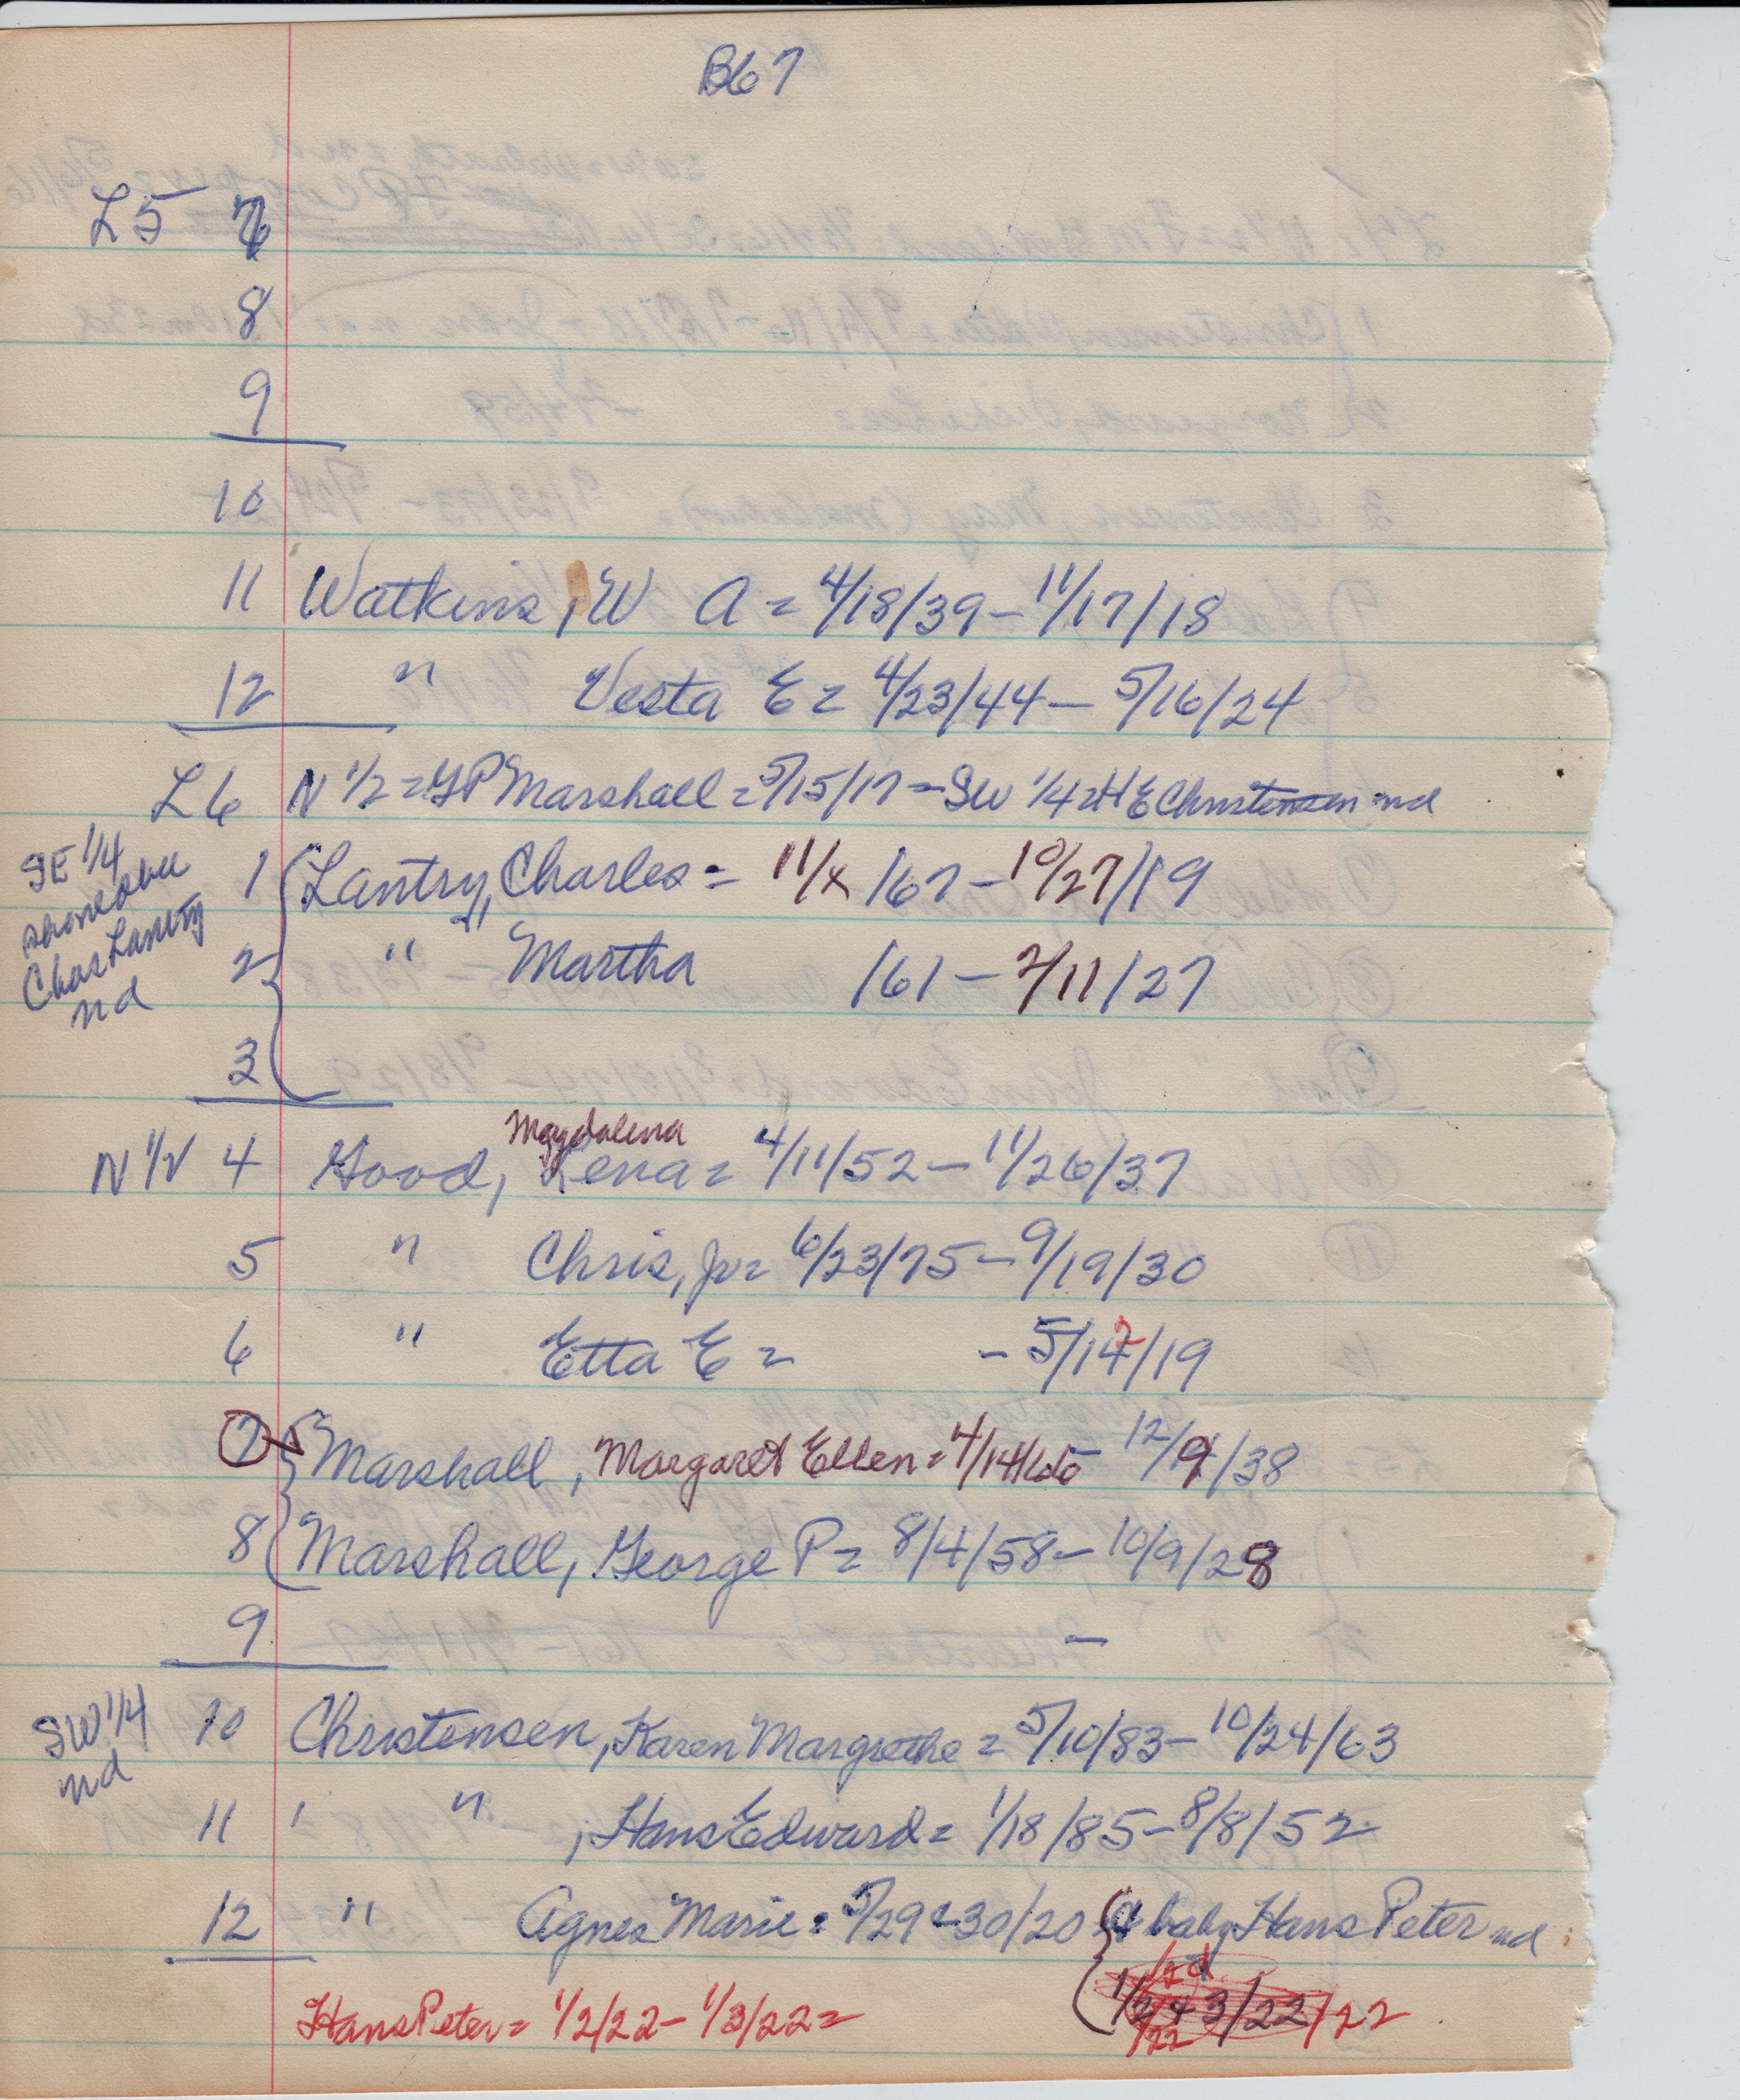 B67
L5 7
8
9
10
11 Watkins, W A = 4/18/39 - 11/17/18
12 " Vesta E = 4/23/44 - 5/16/24
L6 N 1/2 = G P Marshall = 5/15/17 - SW 1/4 = H E Christensen nd
SE 1/4
1 Lantry, Charles = 11/x /67 - 10/27/19
Chas Lantry
nd
2 " Martha /61 - 2/11/27
3
N 1/2 4 Good, Magdalena Lena = 4/11/52 - 11/26/37
5 " Chris, Jr = 6/23/75 - 9/19/30
6 " Etta E = - 5/12/19
7 Marshall, Margaret Ellen = 4/14/60 - 12/9/38
8 Marshall, George P = 8/4/58 - 10/9/28
9 -
SW 1/4
nd
10 Christensen, Karen Margrethe = 5/10/83 - 10/24/63
11 " , Hans Edward = 1/18/85 - 8/8/52
12 " Agnes Marie = 5/29 & 30/20 & baby Hans Peter nd
Hans Peter = 1/2/22 - 1/3/22 =